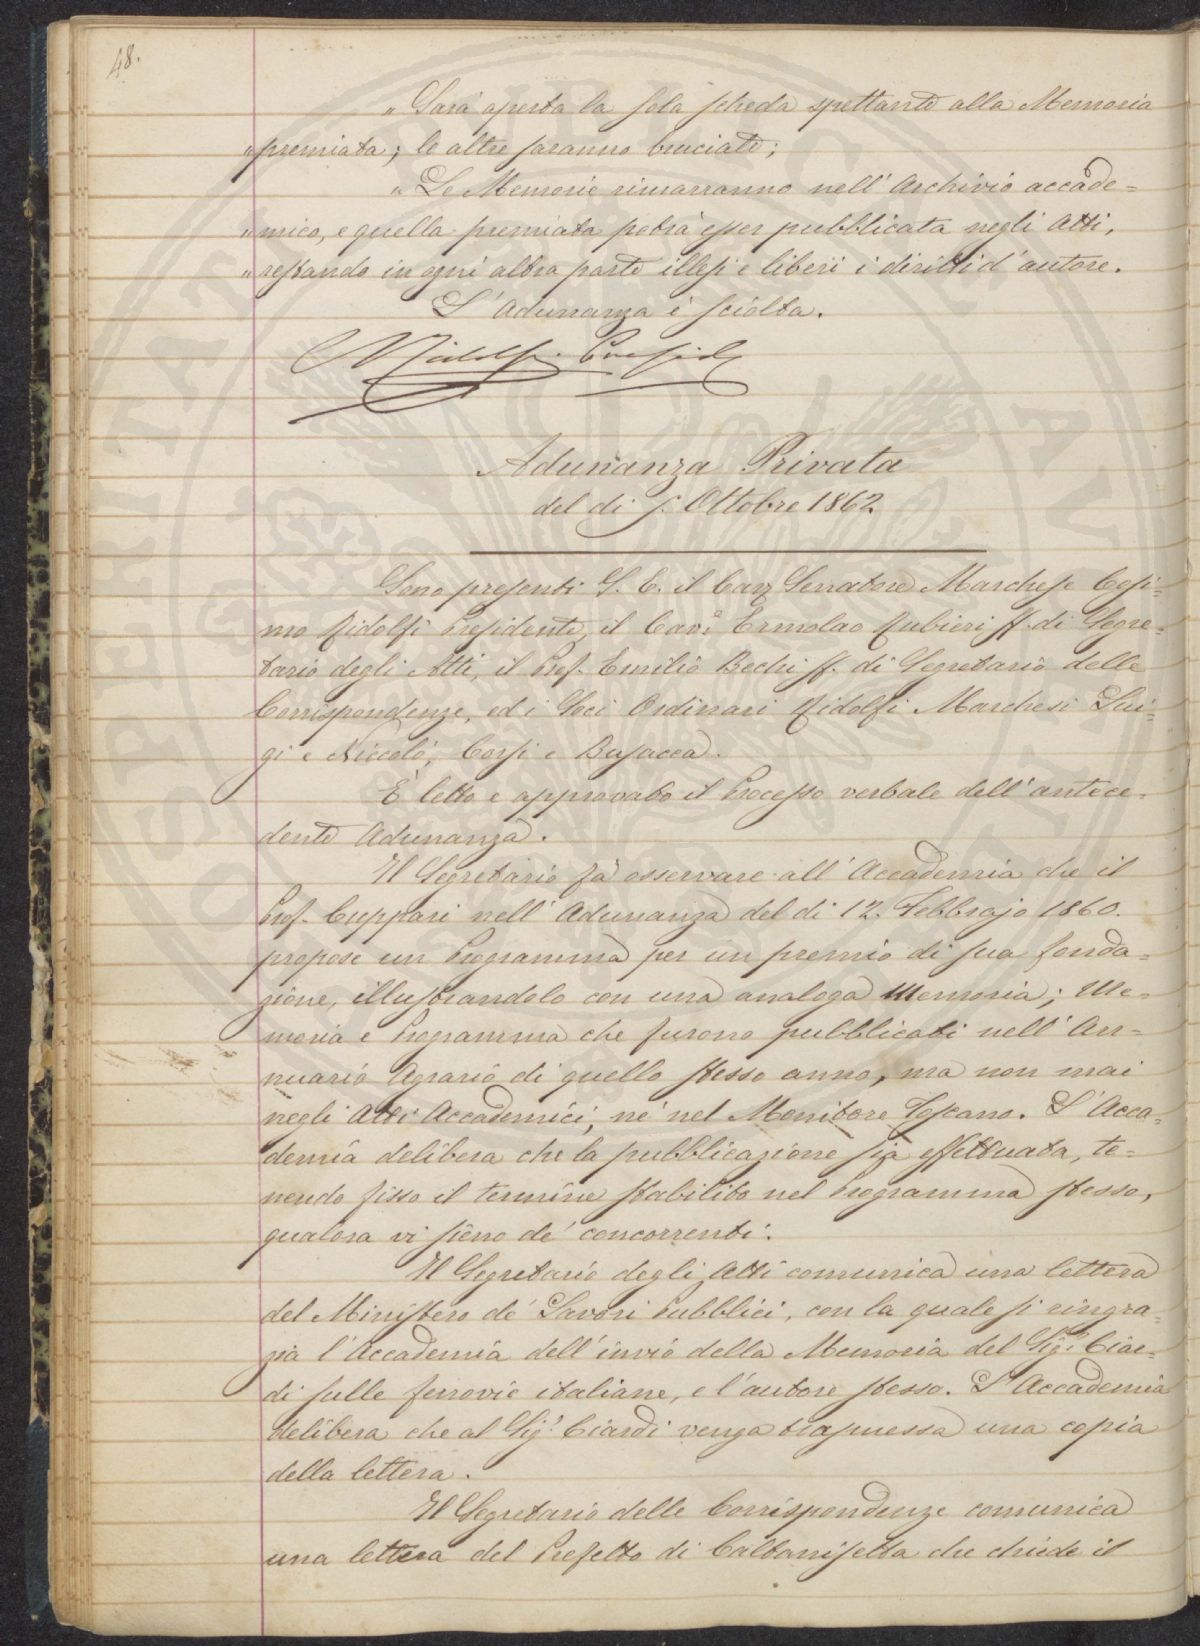 48.
„ Sarà aperta la sola scheda spettante alla Memoria
„ premiata; le altre saranno bruciate;
„ Le Memorie rimarranno nell' Archivio accade=
„ mico, e quella premiata potrà esser pubblicata negli Atti,
„ restando in ogni altra parte illesi e liberi i diritti d' autore.
L' Adunanza è sciolta.
Ridolfi Presid
Adunanza Privata
del dì 5. Ottobre 1862.
Sono presenti S. E. il Cav Senatore Marchese Cosi=
mo Ridolfi Presidente, il Cav. Ermolao Rubieri ff. di Segre=
tario degli Atti, il Prof. Emilio Bechi ff. di Segretario delle
Corrispondenze, ed i Soci Ordinari Ridolfi Marchesi Lui=
gi e Niccolò, Corsi e Busacca.
È letto e approvato il Processo verbale dell' antece=
dente Adunanza.
Il Segretario fà osservare all' Accademia che il
Prof. Cuppari nell' Adunanza del dì 12. Febbrajo 1860.
propose un Programma per un premio di sua fonda=
zione, illustrandolo con una analoga Memoria; Me=
moria e Programma che furono pubblicati nell' An=
nuario Agrario di quello stesso anno, ma non mai
negli Atti Accademici, nè nel Monitore Toscano. L' Acca=
demia delibera che la pubblicazione sia effettuata, te=
nendo fisso il termine stabilito nel Programma stesso,
qualora vi sieno de' concorrenti.
Il Segretario degli Atti comunica una lettera
del Ministero de' Lavori Pubblici, con la quale si ringra=
zia l' Accademia dell' invio della Memoria del Sig.r Ciar=
di sulle ferrovie italiane, e l' autore stesso. L' Accademia
delibera che al Sig.r Ciardi venga trasmessa una copia
della lettera.
Il Segretario delle Corrispondenze comunica
una lettera del Prefetto di Caltanisetta che chiede il